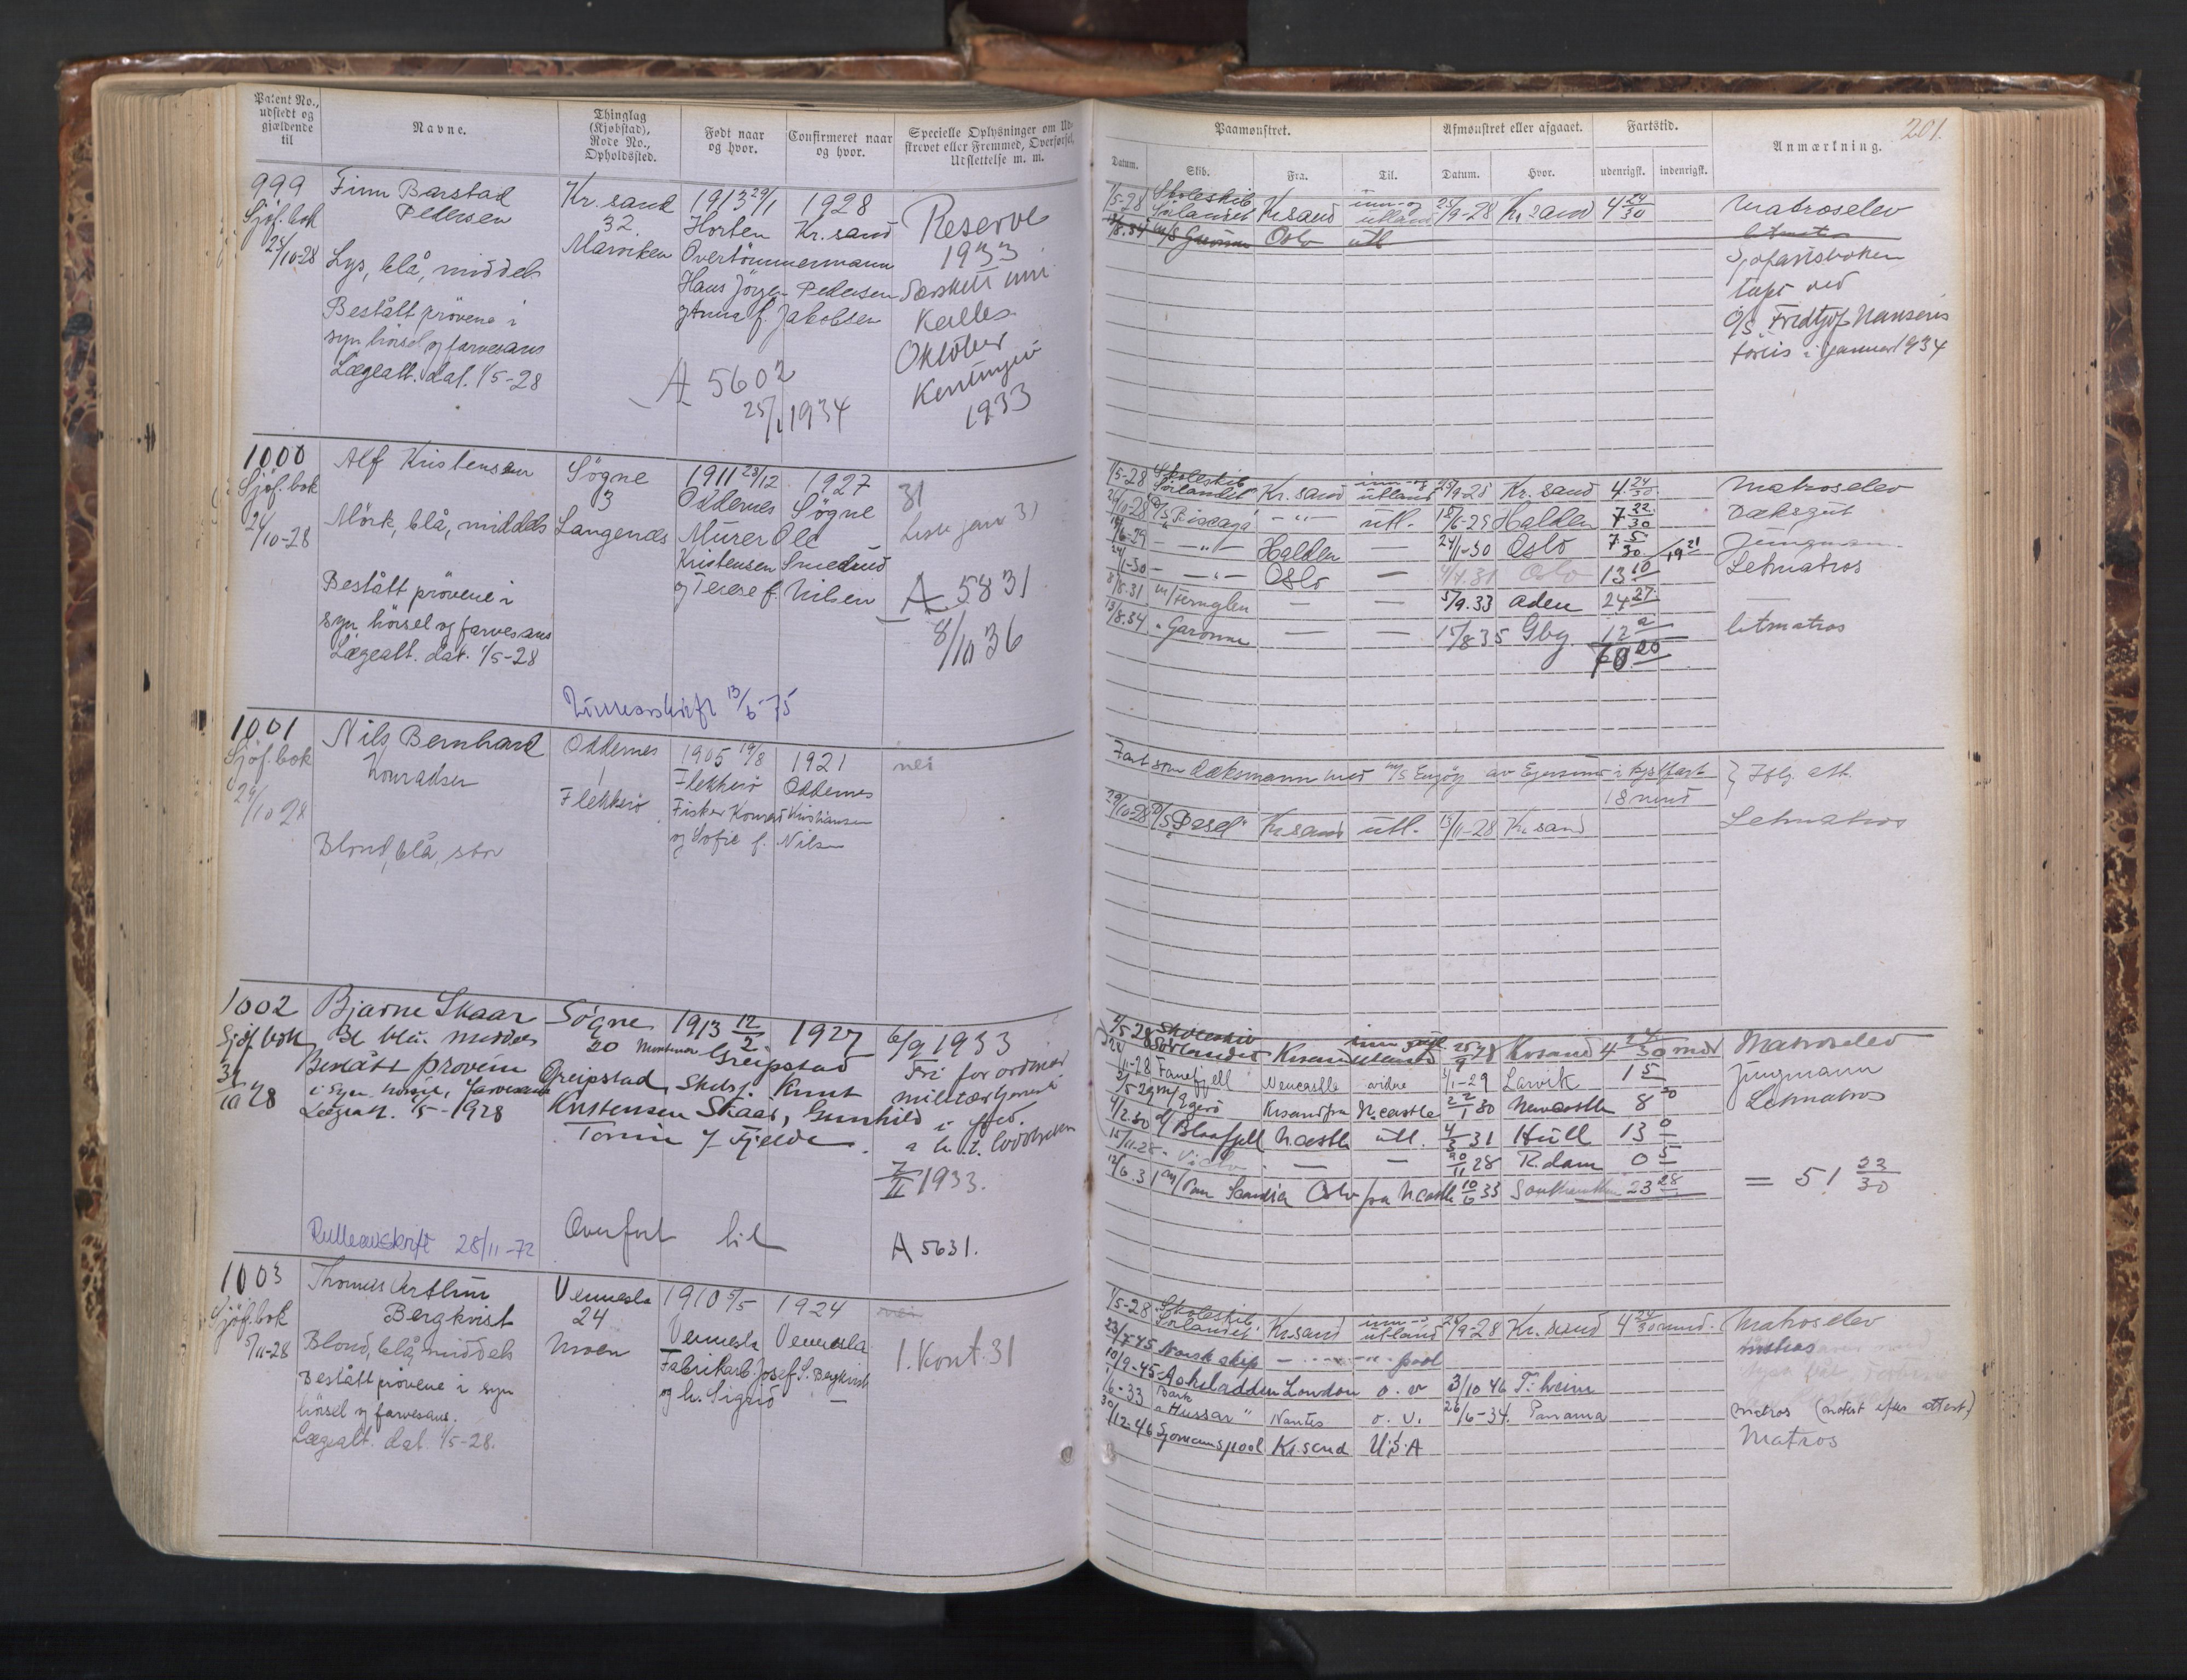 Patent No., udstedt og gjældende til
Navne.
Thinglag (Kjøbstad), Rode No., Opholdssted.
Født naar og hvor.
Confirmeret naar og hvor.
Specielle Oplysninger om Ud-
skrevet eller Fremmed, Overførsel,
Udslettelse m. m.
999
Sjøf. bok
Finn Barstad
Pedersen
Lys, blå, middels
Bestått prøvene i
syn hørsel og farvesans
Lægeatt. dat. 1/5-28
Kr. sand
32.
Marviken
1913 29/1
Horten
1928
Kr. sand
Overtømmermann
Hans Jørgen Pedersen
og Anna f. Jakobsen
A 5602
25/1 1934
Reserve
1933
Kalles
Oktober
1933
1000
Sjøf. bok
24/10-28
Alf Kristensen
Mörk, blå, middels
Bestått prövene i
syn hörsel og farvesans
Lægeatt. dat. 1/5-28
Søgne
3
Langenes
1911 23/12
Oddernes
1927
Søgne
Murer Ole
Kristensen Smedlund
og Terese f. Nilsen
31
A 5831
8/10 36
Rulleavskrift 13/6-75
1001
Sjøf. bok
29/10 28
Nils Bernhard
Konradsen
Blond, blå, stor
Oddernes
1
Flekkerø
1905 19/8
Flekkerø
1921
Oddernes
Fisker Konrad Kristiansen
og Sofie f. Nilsen
nei
1002
Sjøf. bok
31/10 28
Bjarne Skaar
Bl. blå. middels
Bestått prøvene
i syn hørsel, farvesans
Lægeatt. 1/5-1928
Søgne
20
Greipstad
1913 12/2
Greipstad
1927
Kristensen Skaar, Gunhild
Tomine f. Fjelde
6/9 1933
Fri for ordinær
militærtjeneste
i fred.
7/11 1933.
Rulleavskrift 28/11-72
Overført til
A 5631.
1003
Sjøf. bok
5/11-28
Thomas Arthur
Bergkvist
Blond, blå, middels
Bestått prøvene i syn
hørsel og farvesans.
Lægeatt. dat. 1/5-28.
Vennesla
24
Moen
1910 5/5
Vennesla
1924
Vennesla
Fabrikarb. Josef S. Bergkvist
og h. Sigrid
1. Kont. 31
201.
Paamønstret.
Afmønstret eller afgaaet.
Fartstid.
Anmærkning.
Datum.
Skib.
Fra.
Til.
Datum.
Hvor.
udenrigsk.
indenrigsk.
1/5-28 Skoleskib Sørlandet Kr.sand inn- og utland 25/9-28 Kr. sand 4 24/30 Matroselev
13/8.34 m/S Garonne Oslo utl
Sjøfartsboken
tapt ved
O/S. Fridtjof Nansens
forlis i januar 1934
1/5-28 Skoleskib "Sørlandet" Kr. sand inn- og utland 25/9-28 Kr. sand 4 24/30 Matroselev
utl. Halden 7 22/30 Dæksgut
Halden 24/1-30 Oslo 7 5/30 Jungman
24/1-30 Oslo 4/4.31 Oslo 13 10 Letmatros
8/8-31 m/Fernglen 5/9.33 Aden 24 27
13/8.34 " Garonne 15/8 35 Gbg. 12 2 letmatros
Fart som dæksmann med m/S av Egersund i kystfart
18 mnd
29/10-28 Kr.sand utl. 13/11-28 Kr. sand Letmatros
1/5-28 Skoleskib Sørlandet Kr.sand utland 25/9 28 Kr.sand 4 24/30 mnd Matroselev
Fanefjell Newcastle Larvik 1 5 Jungmann
Kr.sand fra N.castle 22/1 30 Newcastle 8 Letmatros
4/2.30 d/ Blaafjell N.castle utl. 4/3 31 Hull 13 0
15/11-28 20/11 28 R.dam 0 5
12/6.31 m/ Pan Scandia Oslo fra N.castle 10/6 33 23 28
= 51 23/30
1/5-28 Skoleskib. Sørlandet. Kr.sand inn- og utland 25/9-28 Kr. sand 4 24/30 mnd. Matroselev
23/7-45 Norsk skip pool matros
10/9-45 Askeladden London o. v 3/10 46 T.heim
1/6-33 Bark "Hussar" Nantes o. v. 26/6-34. Panama Matros (notert efter attest)
30/12-46 Sjømannspool Kr.sand U.S.A Matros